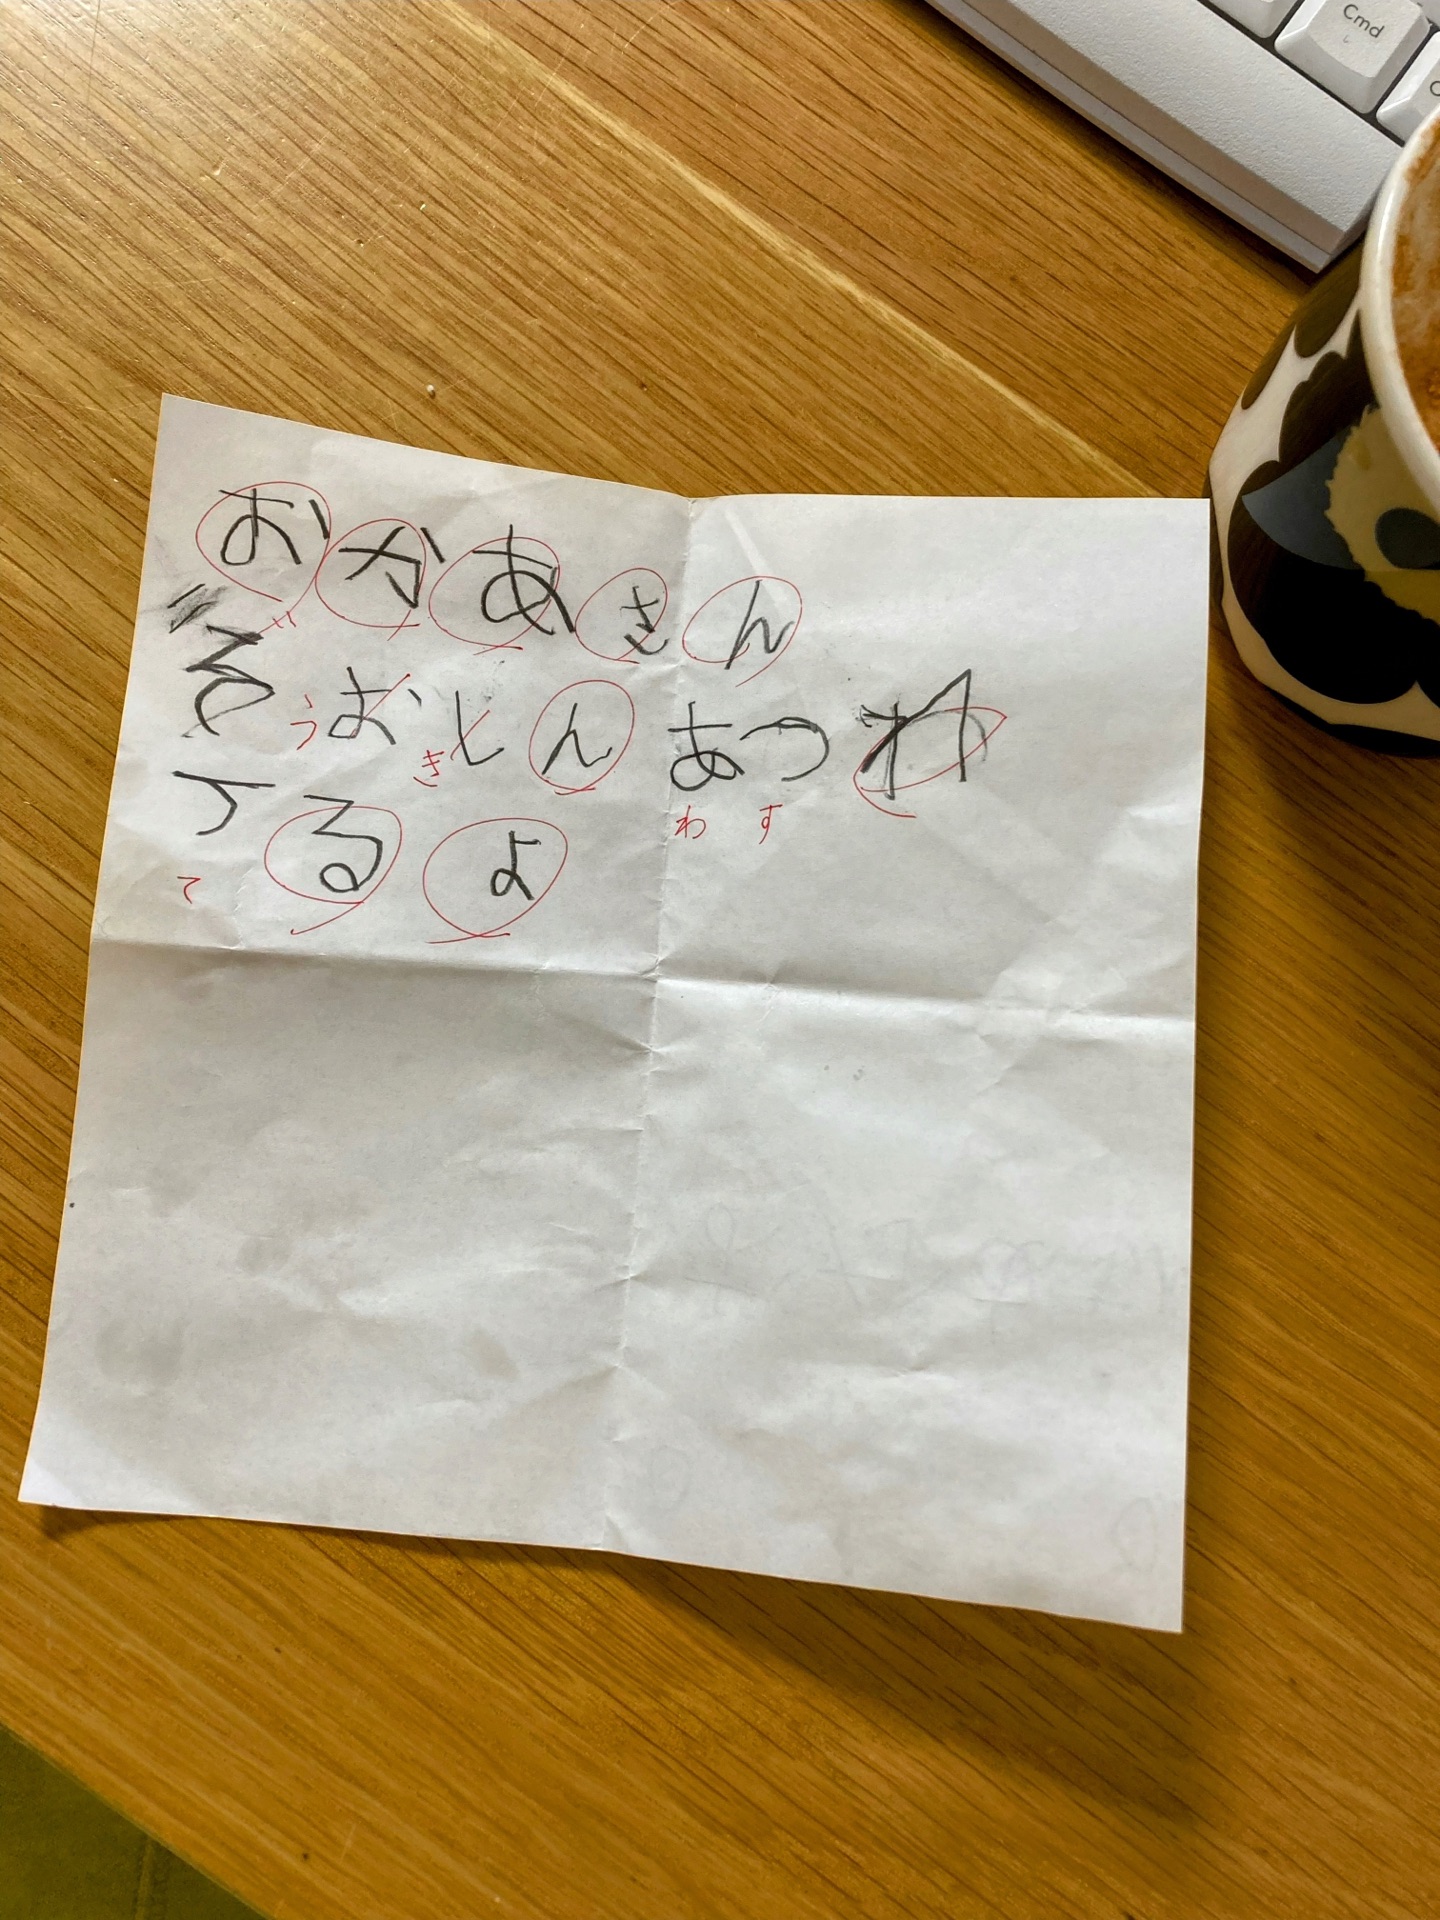 Cmd
おかあさん
ぞおとん あつれ
てるよ
゛
う き わ す
て